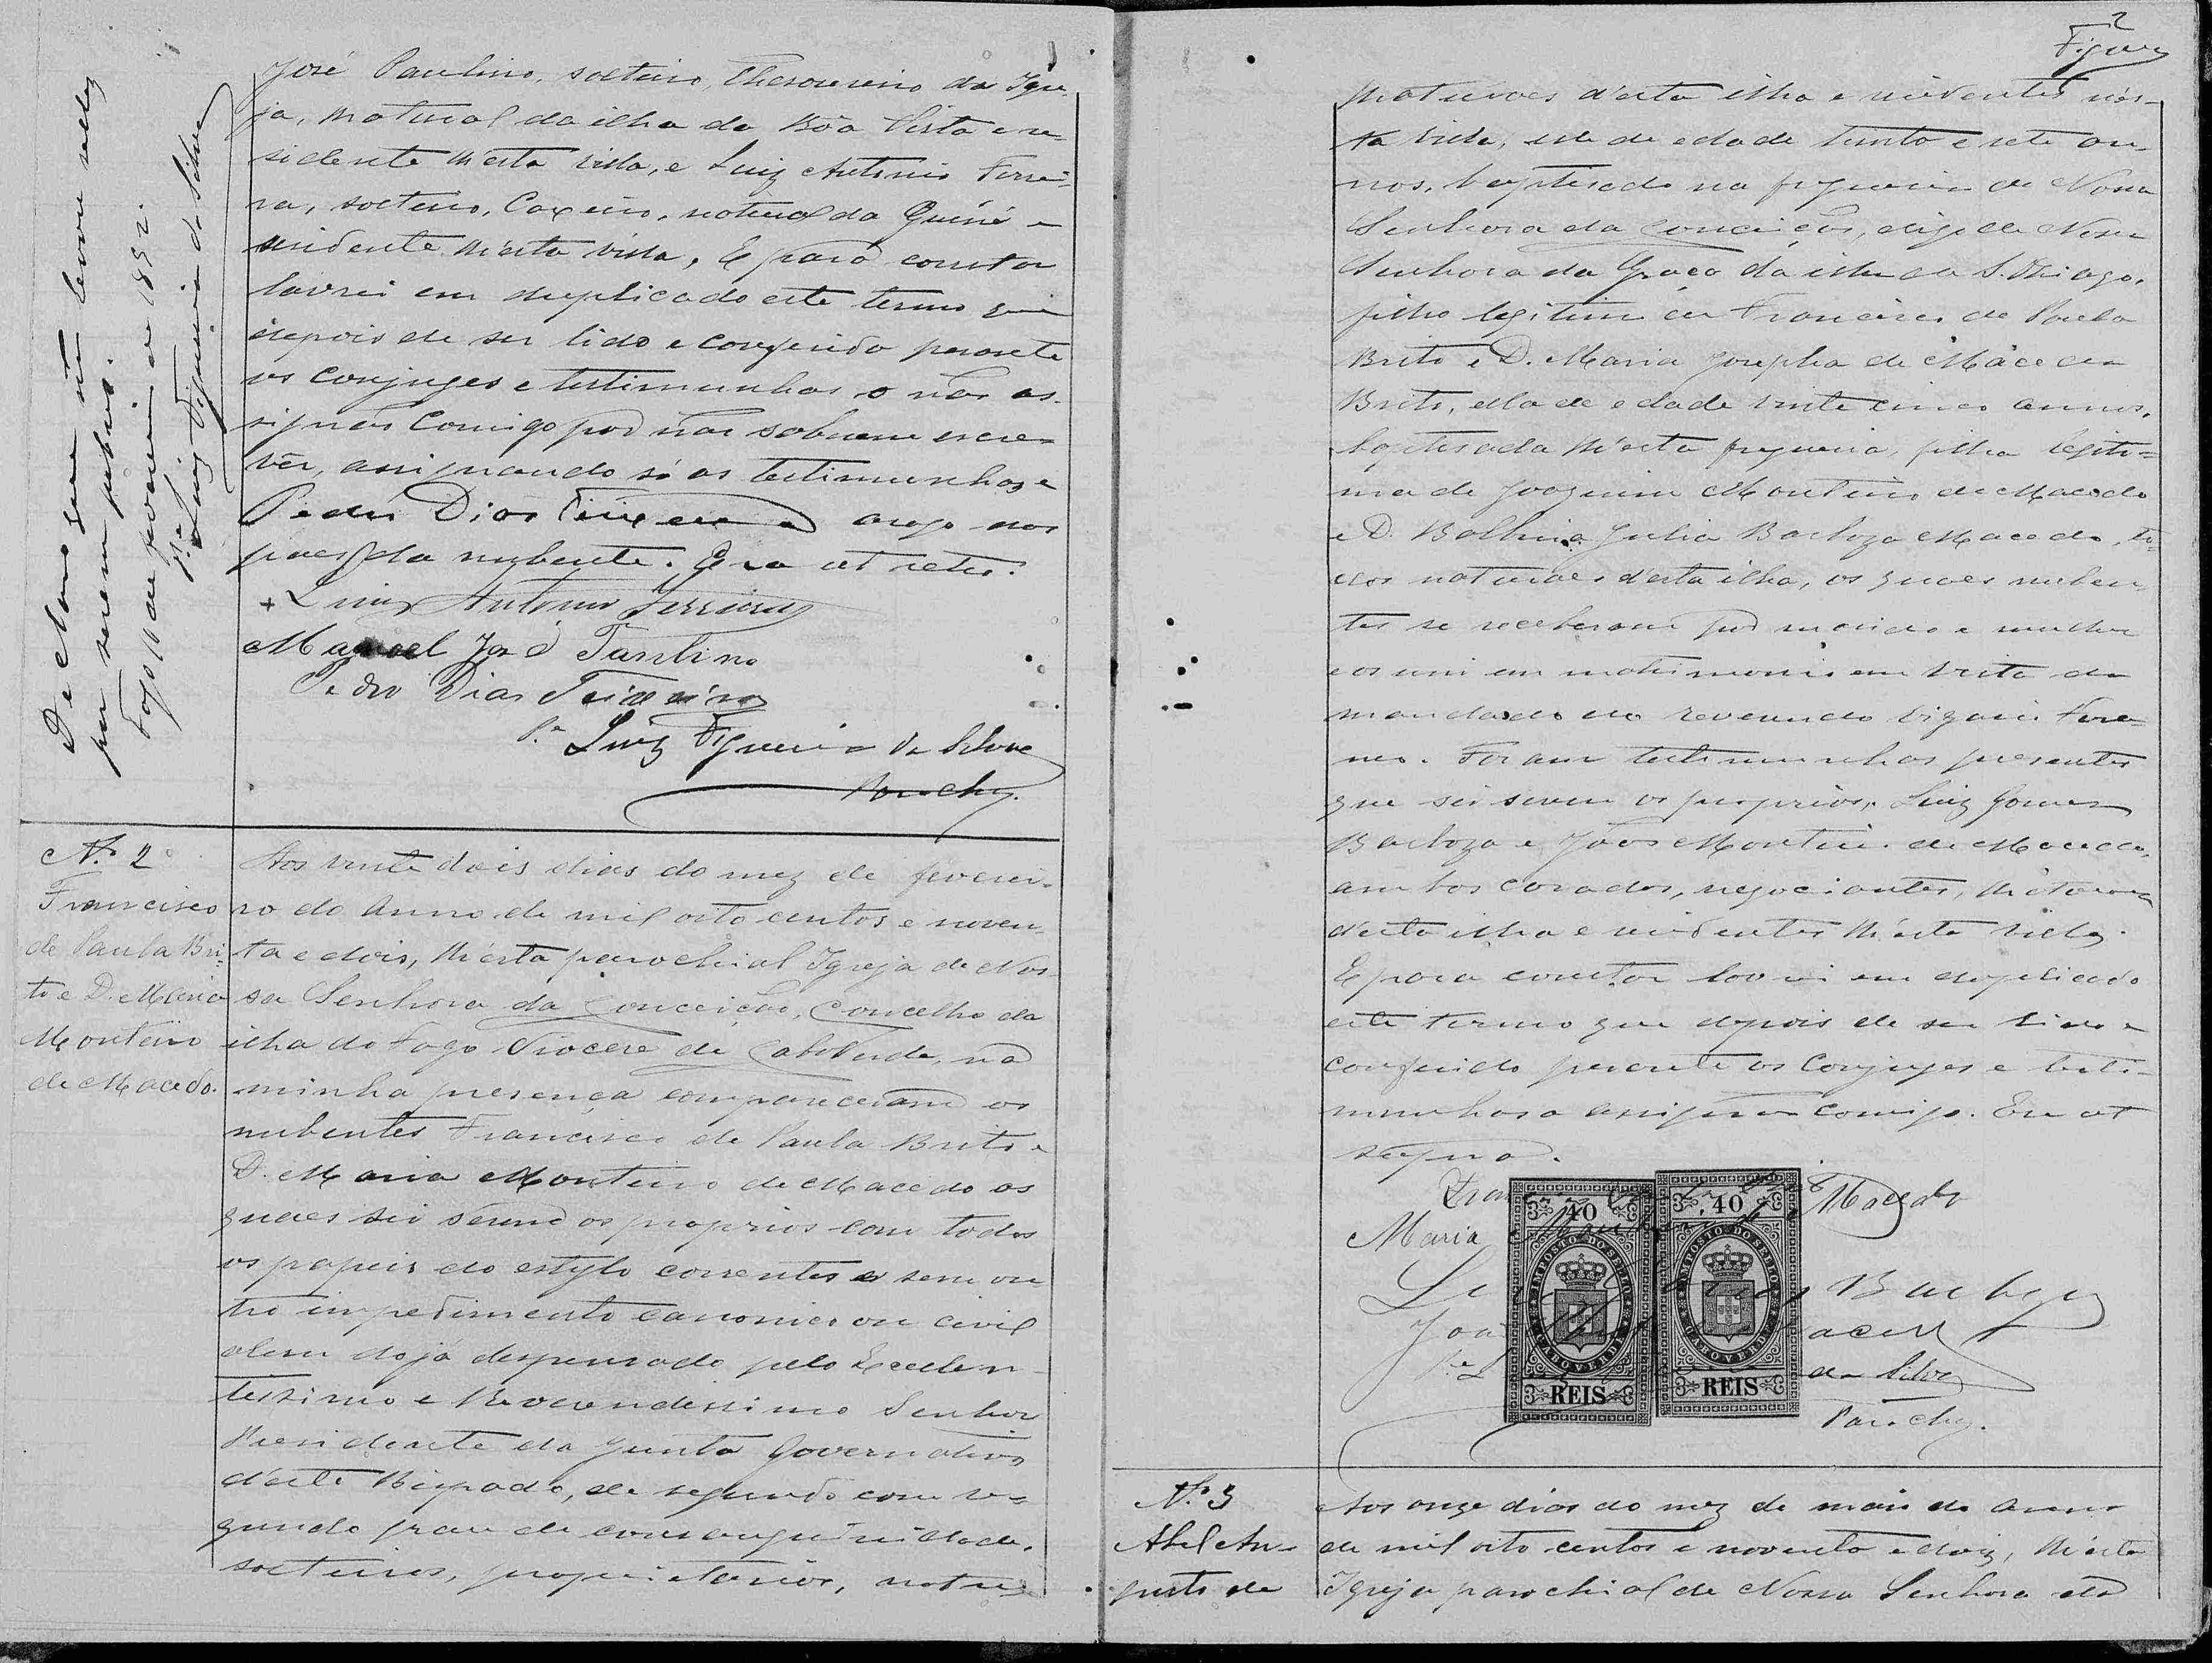 José Paulino, solteiro, thesoureiro da Igre-
ja, natural da ilha da Bôa Vista e re-
sidente n'esta villa, e Luiz Antonio Ferrei-
ra, solteiro, Caxeiro, natural da Guiné e
residente n'esta villa, E para constar
lavrei em duplicado este termo que
depois de ser lido e conferido perante
os conjuges e testimunhas o não as-
signão Comigo por não saberem escre-
ver, assignando só as testimunhas e
Pedro Dias Teixeira a rogo dos
paes da nubente. Era ut retro.
+ Luiz Antonio Ferreira
Manoel José Paulino
Pedro Dias Teixeira
P.e Luiz Figueira da Silva
Parocho.
Declaro que não levou sello
por serem pobres.
Fogo de fevereiro de 1892.
P.e Luiz Figueira da Silva
N.o 2
Francisco
de Paula Bri-
to e D. Maria
Monteiro
de Macedo.
Aos vinte dois dias do mez de feverei-
ro do Anno de mil oito centos e noven-
ta e dois, n'esta parochial Igreja de Nos-
sa Senhora da Conceição, Concelho da
ilha do Fogo Diocese de CaboVerde, na
minha presença compareceram os
nubentes Francisco de Paula Brito e
D. Maria Monteiro de Macedo os
quaes sei serem os proprios com todos
os papeis do estylo correntes e sem ou
tro impedimento canonico ou civil
alem do já despensado pelo Excellen-
tissimo e Reverendissimo Senhor
Presidente da Junta Governativa
d'este Bispado, de segundo com se-
gundo grau de consanguinidade.
solteiros, proprietarios, natu-
2
Figueira
naturaes d'esta ilha e residentes n'es-
ta villa, elle de edade trinta e sete an-
nos, baptisado na freguezia de Nossa
Senhora da Conceição, digo de Nossa
Senhora da Graça da ilha de S. Thiago,
filho legitimo de Francisco de Paula
Brito e D. Maria Josepha de Macedo
Brito, ella de edade vinte cinco annos,
baptisada n'esta freguezia, filha legiti-
ma de Joaquim Monteiro de Macedo
e D. Balbina Julia Barboza Macedo, to-
dos naturaes d'esta ilha, os quaes nuben-
tes se receberam por marido e mulher
e os uni em matrimonio em vista do
mandado do reverendo vigario Fora-
neo. Foram testimunhas presentes
que sei serem os proprios, Luiz Gomes
Barboza e João Monteiro de Macedo,
ambos casados, negociantes, naturaes
d'esta ilha e residentes n'esta villa.
E para constar lavrei em duplicado
este termo que depois de ser lido e
conferido perante os Conjuges e testi-
munhas o assignão comigo. Era ut
supra.
Macedo
Maria
Barboza
João
P.e L da Silva
Parocho.
40
IMPOSTO DO SELLO
CABO VERDE
REIS
40
IMPOSTO DO SELLO
CABO VERDE
REIS
N.o 3
Abel Au-
gusto de
Aos onze dias do mez de maio do anno
de mil oito centos e noventa e dois, n'esta
Igreja parochial de Nossa Senhora da